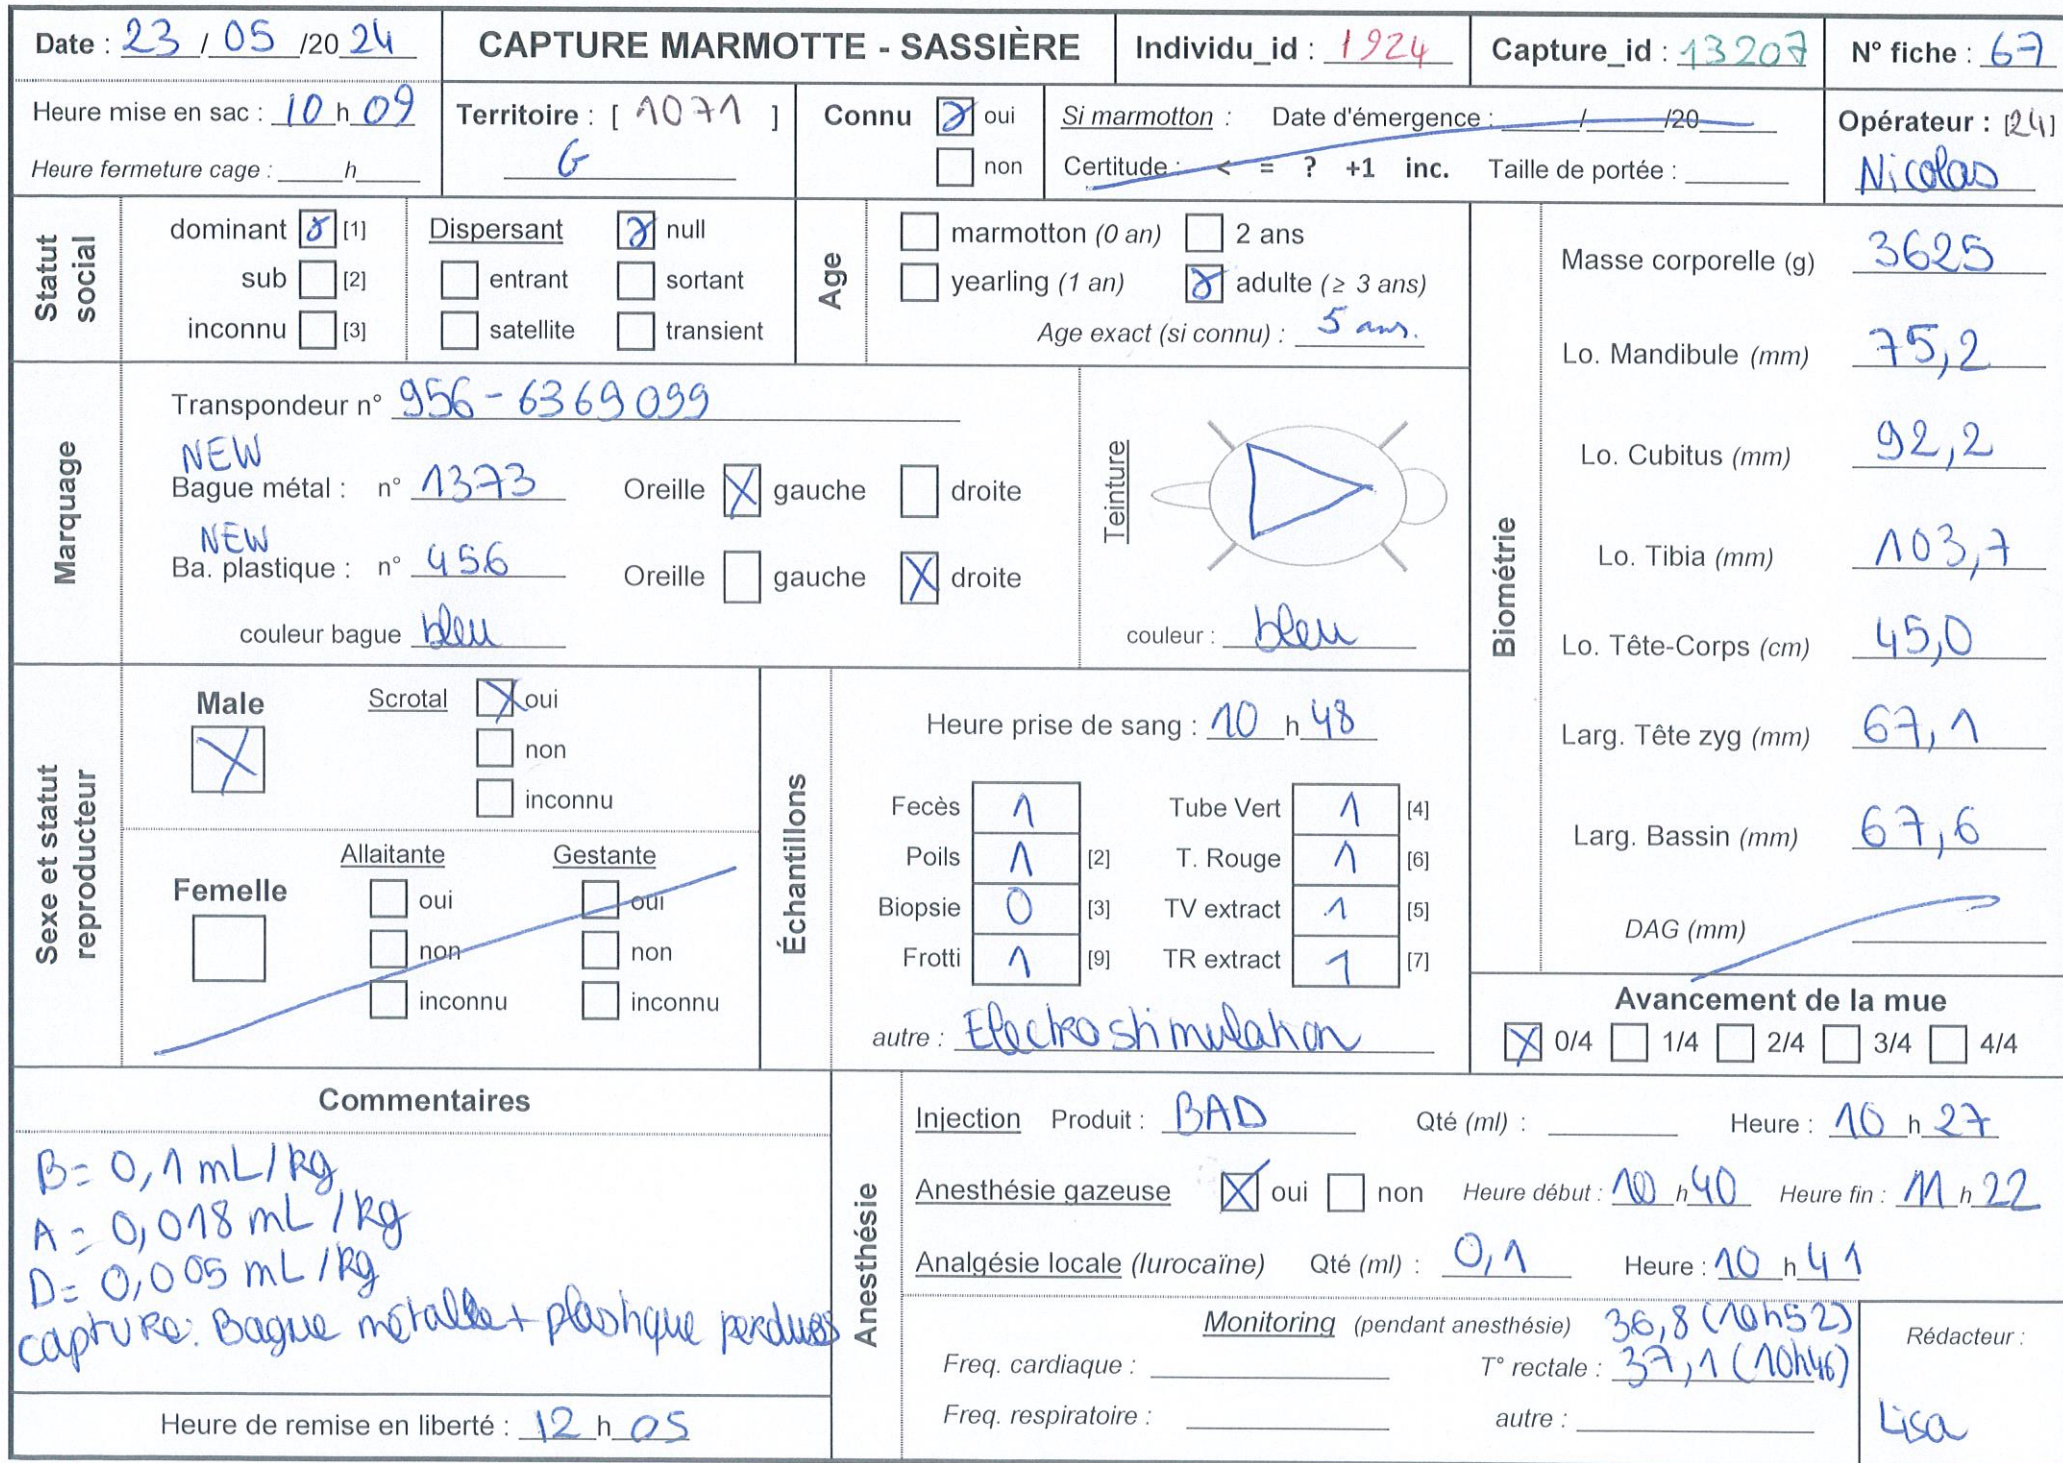 Date : 23 / 05 /20 24
CAPTURE MARMOTTE - SASSIÈRE
Individu_id : 1924
Capture_id : 13207
N° fiche : 67
Heure mise en sac : 10 h 09
Heure fermeture cage : h
Territoire : [ 1071 ]
G
Connu oui
non
Si marmotton : Date d'émergence : / /20
Certitude : < = ? +1 inc. Taille de portée :
Opérateur : [24]
Nicolas
Statut social
dominant [1]
sub [2]
inconnu [3]
Dispersant null
entrant sortant
satellite transient
Age
marmotton (0 an) 2 ans
yearling (1 an) adulte (≥ 3 ans)
Age exact (si connu) : 5 ans.
Marquage
Transpondeur n° 956-6369099
NEW
Bague métal : n° 1373 Oreille X gauche droite
NEW
Ba. plastique : n° 456 Oreille gauche X droite
couleur bague bleu
Teinture
couleur : bleu
Biométrie
Masse corporelle (g) 3625
Lo. Mandibule (mm) 75,2
Lo. Cubitus (mm) 92,2
Lo. Tibia (mm) 103,7
Lo. Tête-Corps (cm) 45,0
Larg. Tête zyg (mm) 67,1
Larg. Bassin (mm) 67,6
DAG (mm)
Sexe et statut reproducteur
Male X
Scrotal X oui
non
inconnu
Femelle
Allaitante
oui
non
inconnu
Gestante
oui
non
inconnu
Échantillons
Heure prise de sang : 10 h 48
Fecès 1 Tube Vert 1 [4]
Poils 1 [2] T. Rouge 1 [6]
Biopsie 0 [3] TV extract 1 [5]
Frotti 1 [9] TR extract 1 [7]
autre : Electrostimulation
Avancement de la mue
X 0/4 1/4 2/4 3/4 4/4
Commentaires
B= 0,1 mL/kg
A= 0,018 mL/kg
D= 0,005 mL/kg
capture: Bague métalle + plastique perdues
Heure de remise en liberté : 12 h 05
Anesthésie
Injection Produit : BAD Qté (ml) : Heure : 10 h 27
Anesthésie gazeuse X oui non Heure début : 10 h 40 Heure fin : 11 h 22
Analgésie locale (lurocaïne) Qté (ml) : 0,1 Heure : 10 h 41
Monitoring (pendant anesthésie) 36,8 (10h52)
Freq. cardiaque : T° rectale : 37,1 (10h46)
Freq. respiratoire : autre :
Rédacteur :
Lisa